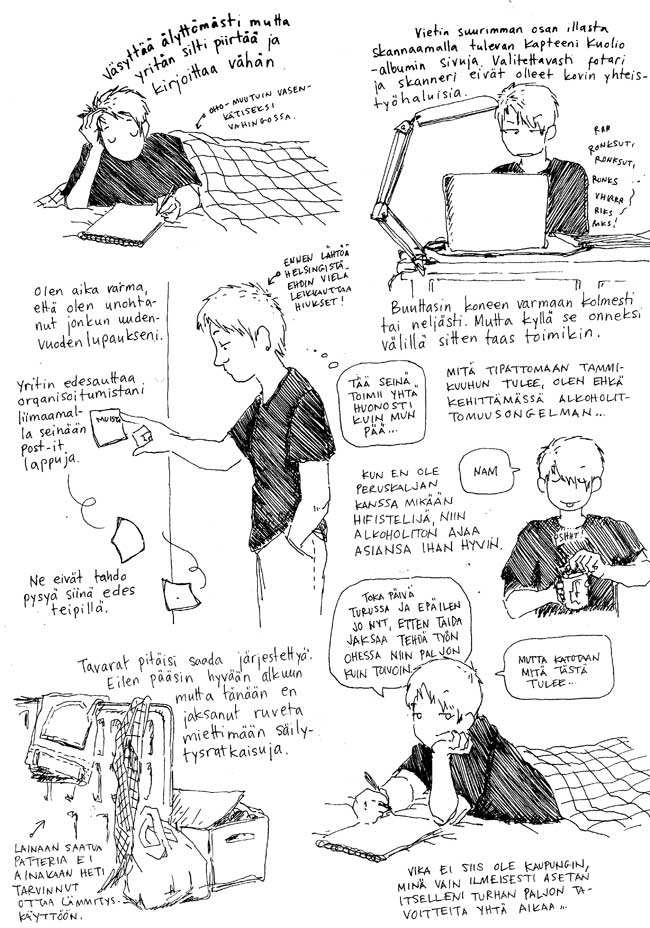 Väsyttää älyttömästi mutta
yritän silti piirtää ja
kirjoittaa vähän.
OHO-MUUTUIN VASEN-
KÄTISEKSI
VAHINGOSSA.
Vietin suurimman osan illasta
skannaamalla tulevan Kapteeni Kuolio
-albumin sivuja. Valitettavasti fotari
ja skanneri eivät olleet kovin yhteis-
työhaluisia.
RAP
RONKSUTI
RONKSUTI,
RONKS
VHRRRR
RIKS
RAKS!
ENNEN LÄHTÖÄ
HELSINGISTÄ
EHDIN VIELÄ
LEIKKAUTTAA
HIUKSET!
Olen aika varma,
että olen unohta-
nut jonkun uuden-
vuoden lupaukseni.
Buuttasin koneen varmaan kolmesti
tai neljästi. Mutta kyllä se onneksi
välillä sitten taas toimikin.
Yritin edesauttaa
organisoitumistani
liimaamal-
la seinään
Post-it
lappuja.
MUISTA
TÄÄ SEINÄ
TOIMII YHTÄ
HUONOSTI
KUIN MUN
PÄÄ...
MITÄ TIPATTOMAAN TAMMI-
KUUHUN TULEE, OLEN EHKÄ
KEHITTÄMÄSSÄ ALKOHOLIT-
TOMUUSONGELMAN...
KUN EN OLE
PERUSKALJAN
KANSSA MIKÄÄN
HIFISTELIJÄ, NIIN
ALKOHOLITON AJAA
ASIANSA IHAN HYVIN.
NAM
PSHHT!
Ne eivät tahdo
pysyä siinä edes
teipillä.
TOKA PÄIVÄ
TURUSSA JA EPÄILEN
JO NYT, ETTEN TAIDA
JAKSAA TEHDÄ TYÖN
OHESSA NIIN PALJON
KUIN TOIVOIN...
MUTTA KATOTAAN
MITÄ TÄSTÄ
TULEE...
Tavarat pitäisi saada järjestettyä.
Eilen pääsin hyvään alkuun
mutta tänään en
jaksanut ruveta
miettimään säily-
tysratkaisuja.
LAINAAN SAATUA
PATTERIA EI
AINAKAAN HETI
TARVINNUT
OTTAA LÄMMITYS-
KÄYTTÖÖN.
VIKA EI SIIS OLE KAUPUNGIN,
MINÄ VAIN ILMEISESTI ASETAN
ITSELLENI TURHAN PALJON TA-
VOITTEITA YHTÄ AIKAA...